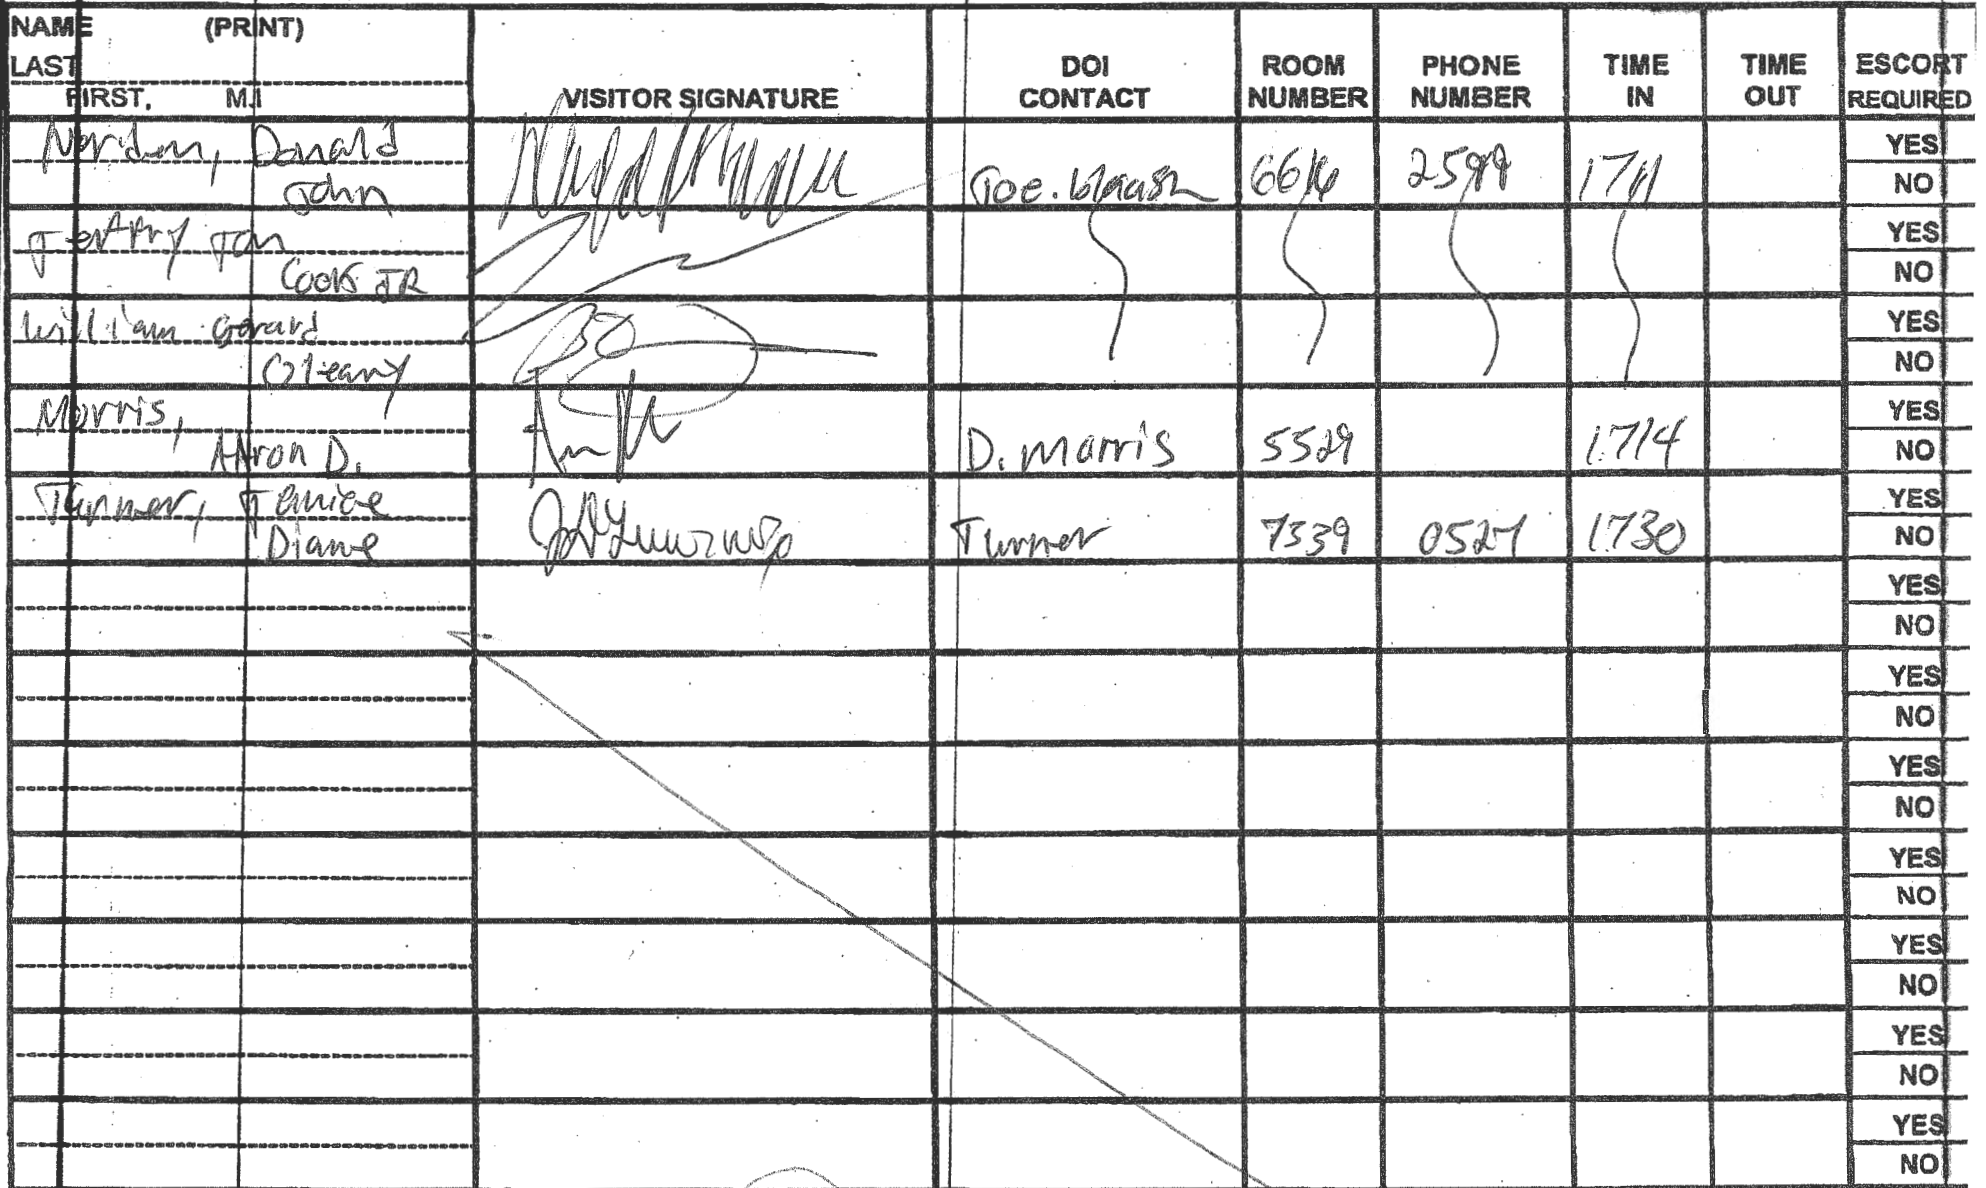 NAME (PRINT)
LAST
FIRST, M.I
VISITOR SIGNATURE
DOI CONTACT
ROOM NUMBER
PHONE NUMBER
TIME IN
TIME OUT
ESCORT REQUIRED
Donald
John
Joe 1711
YES
NO
Jon
Cook JR
YES
NO
William Gerard
Oleary
YES
NO
Morris,
AAron D. D. Morris 5529 1714
YES
NO
Turner, Janice
Diane Turner 7339 0527 1730
YES
NO
YES
NO
YES
NO
YES
NO
YES
NO
YES
NO
YES
NO
YES
NO